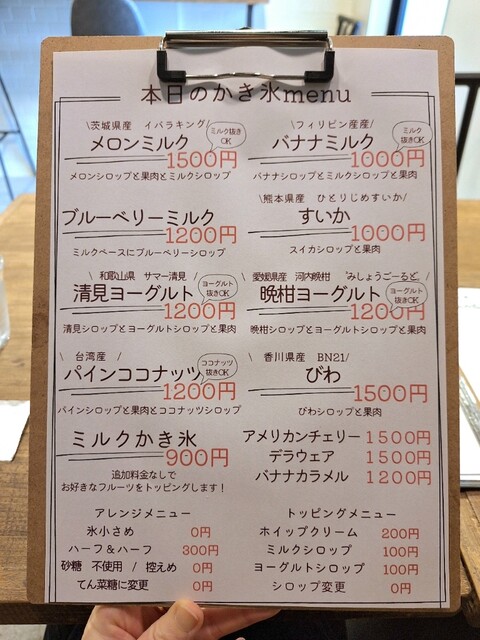 本日のかき氷menu
\茨城県産 イバラキング/
メロンミルク
ミルク抜き
OK
1500円
メロンシロップと果肉とミルクシロップ
\フィリピン産産/
バナナミルク
ミルク
抜きOK
1000円
バナナシロップとミルクシロップと果肉
ブルーベリーミルク
1200円
ミルクベースにブルーベリーシロップ
\熊本県産 ひとりじめすいか/
すいか
1000円
スイカシロップと果肉
\和歌山県 サマー清見 /
清見ヨーグルト
ヨーグルト
抜きOK
1200円
清見シロップとヨーグルトシロップと果肉
\愛媛県産 河内晩柑 "みしょうごーるど/
晩柑ヨーグルト
ヨーグルト
抜きOK
1200円
晩柑シロップとヨーグルトシロップと果肉
\ 台湾産 /
パインココナッツ
ココナッツ
抜きOK
1200円
パインシロップと果肉とココナッツシロップ
\香川県産 BN21/
びわ
1500円
びわシロップと果肉
ミルクかき氷
900円
追加料金なしで
お好きなフルーツをトッピングします！
アメリカンチェリー 1500円
デラウェア 1500円
バナナカラメル 1200円
アレンジメニュー
氷小さめ 0円
ハーフ&ハーフ 300円
砂糖 不使用 / 控えめ 0円
てん菜糖に変更 0円
トッピングメニュー
ホイップクリーム 200円
ミルクシロップ 100円
ヨーグルトシロップ 100円
シロップ変更 0円